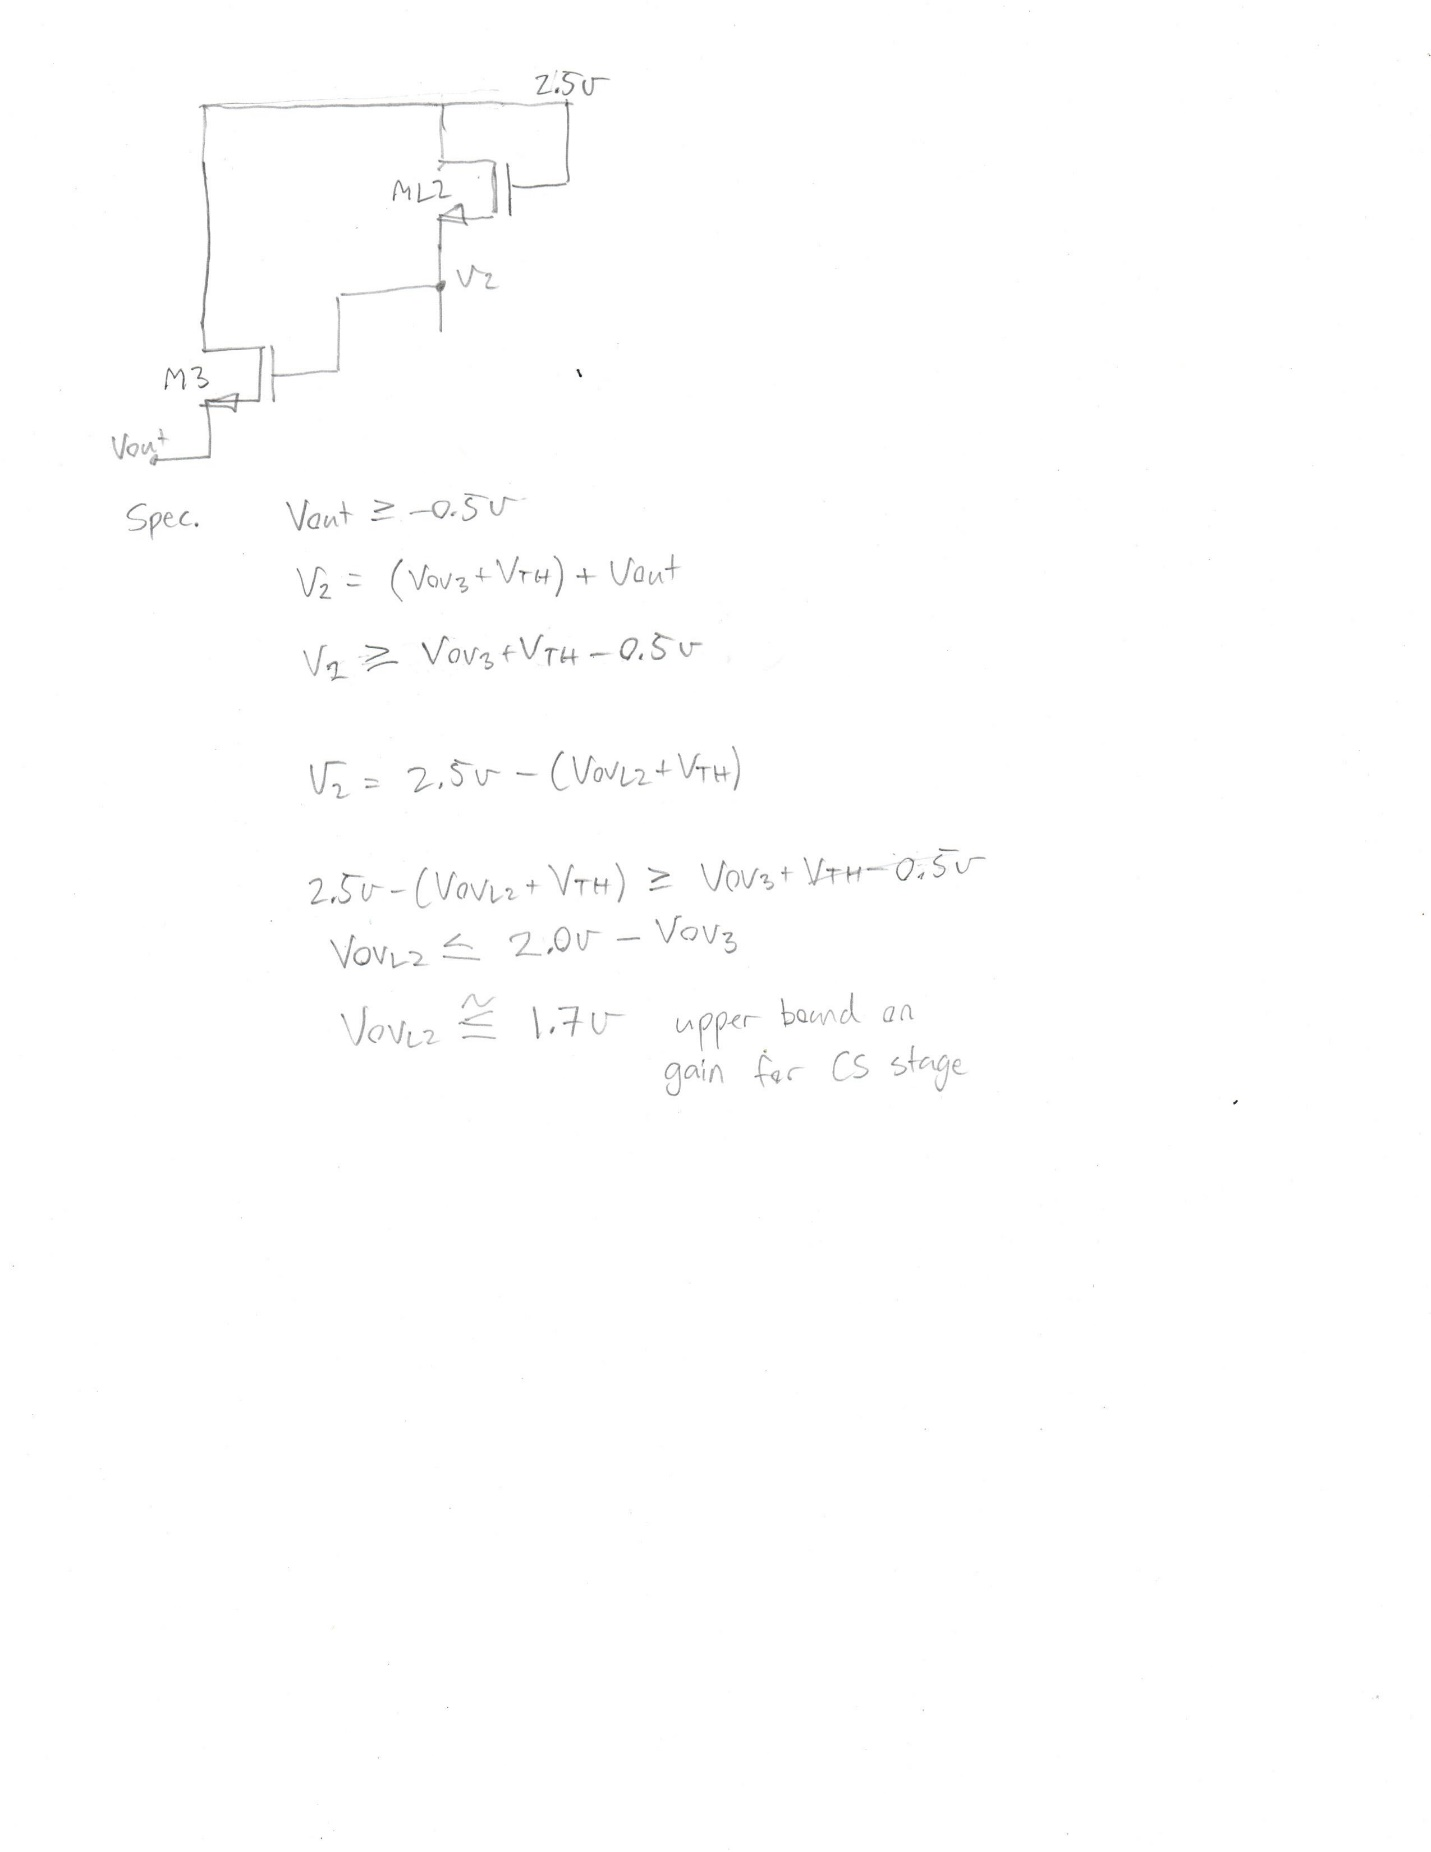 2.5v
ML2
V2
M3
Vout
Spec. Vout ≥ -0.5v
V2 = (VOV3 + VTH) + Vout
V2 ≥ VOV3 + VTH - 0.5v
V2 = 2.5v - (VOVL2 + VTH)
2.5v - (VOVL2 + VTH) ≥ VOV3 + VTH - 0.5v
VOVL2 ≤ 2.0v - VOV3
VOVL2 ≲ 1.7v upper bound on
gain for CS stage